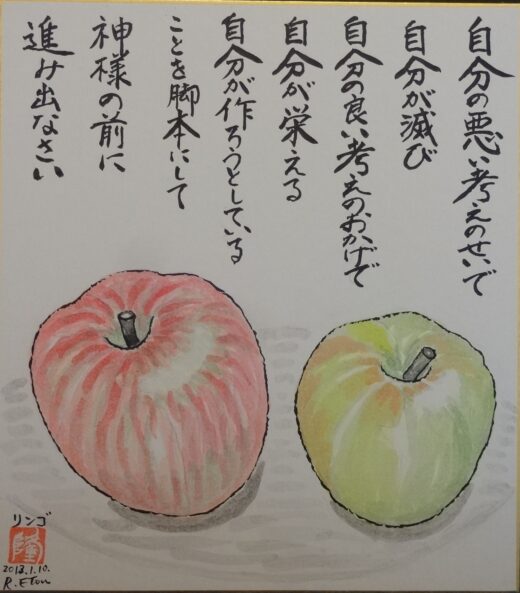 自分の悪い考えのせいで
自分が滅び
自分の良い考えのおかげで
自分が栄える
自分が作ろうとしている
ことを脚本にして
神様の前に
進み出なさい
リンゴ
隆
2013.1.10.
R.Etou